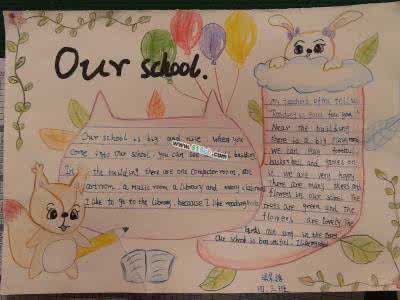 Our school.
Our school is big and nice when you
come into our school you can see building
In the building there are one computer room, an
art room, a music room a library and many classrooms
I like to go to the library, because I like reading books
Near the building
there is a big playground
we can run
basketball and games on
it we are very happy
There are many trees and
flowers in our school The
trees are green and the
flowers are lovely The
birds are sing in the trees
Our school is beautiful
四三班